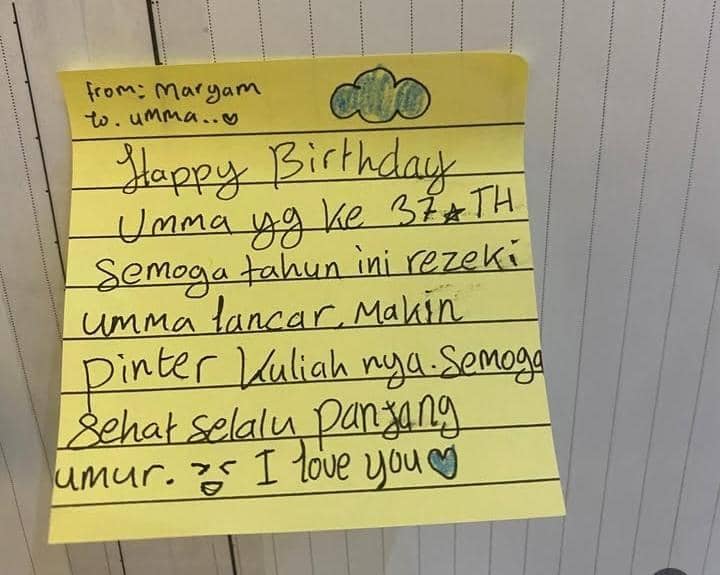 from: Maryam
to. umma..♡
Happy Birthday
Umma yg ke 37★TH
Semoga tahun ini rezeki
umma lancar. Makin
pinter kuliah nya. Semoga
Sehat selalu panjang
umur. I love you♡